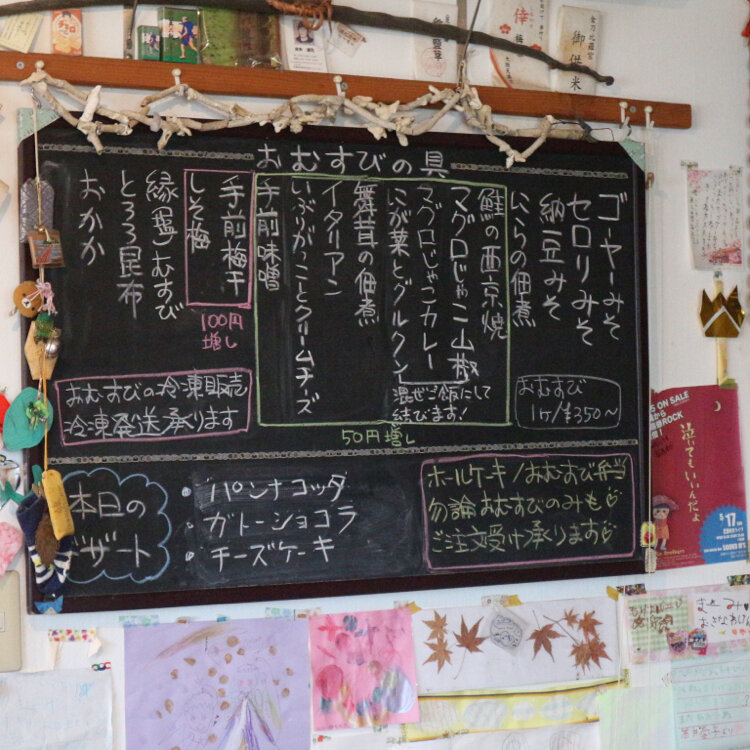 おむすびの具
ゴーヤーみそ
セロリみそ
納豆みそ
にらの佃煮
鮭の西京焼
マグロじゃこ山椒
マグロじゃこカレー
にが菜とグルクン
混ぜご飯にして
結びます!
舞茸の佃煮
イタリアン
いぶりがっことクリームチーズ
手前味噌
50円増し
手前梅干
しそ梅
100円
増し
縁(塩)むすび
とろろ昆布
おかか
おむすび
1ケ/¥350〜
おむすびの冷凍販売
冷凍発送承ります
本日の
デザート
・パンナコッタ
・ガトーショコラ
・チーズケーキ
ホールケーキ/おむすび弁当
勿論おむすびのみも♡
ご注文受け承ります♡
御供米
泣いてもいいんだよ
S ON SALE
ROCK
5/17